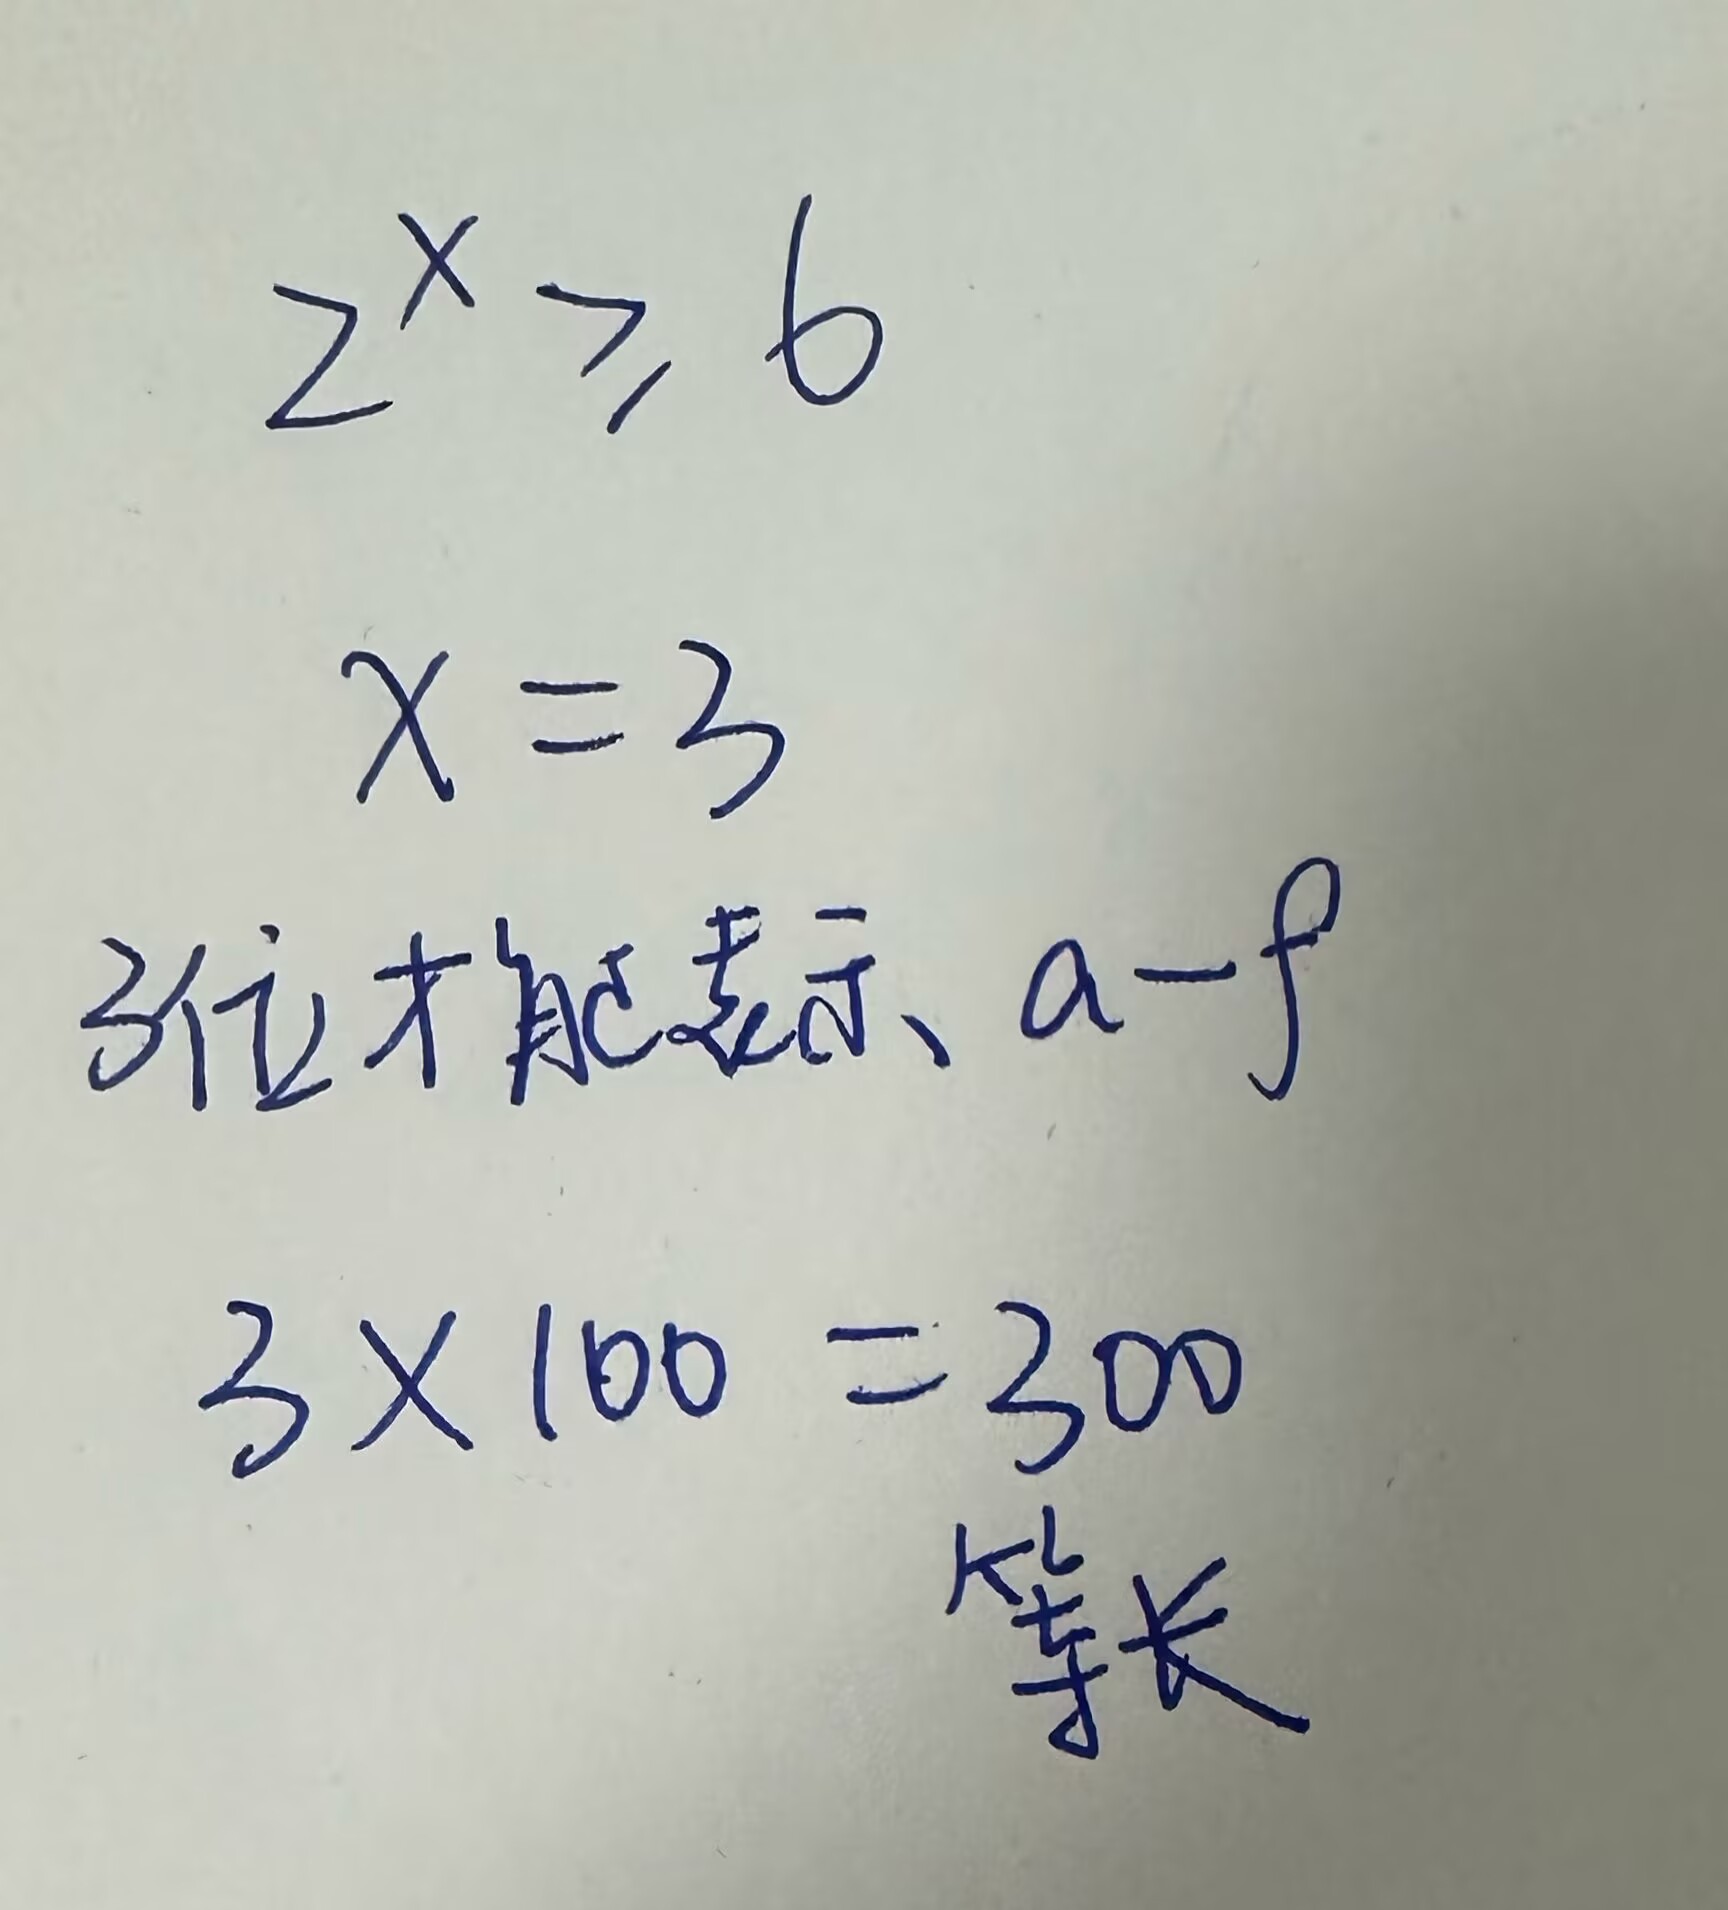 2^x ⩾ 6
x = 3
3位才能表示、a-f
3 × 100 = 300
等长